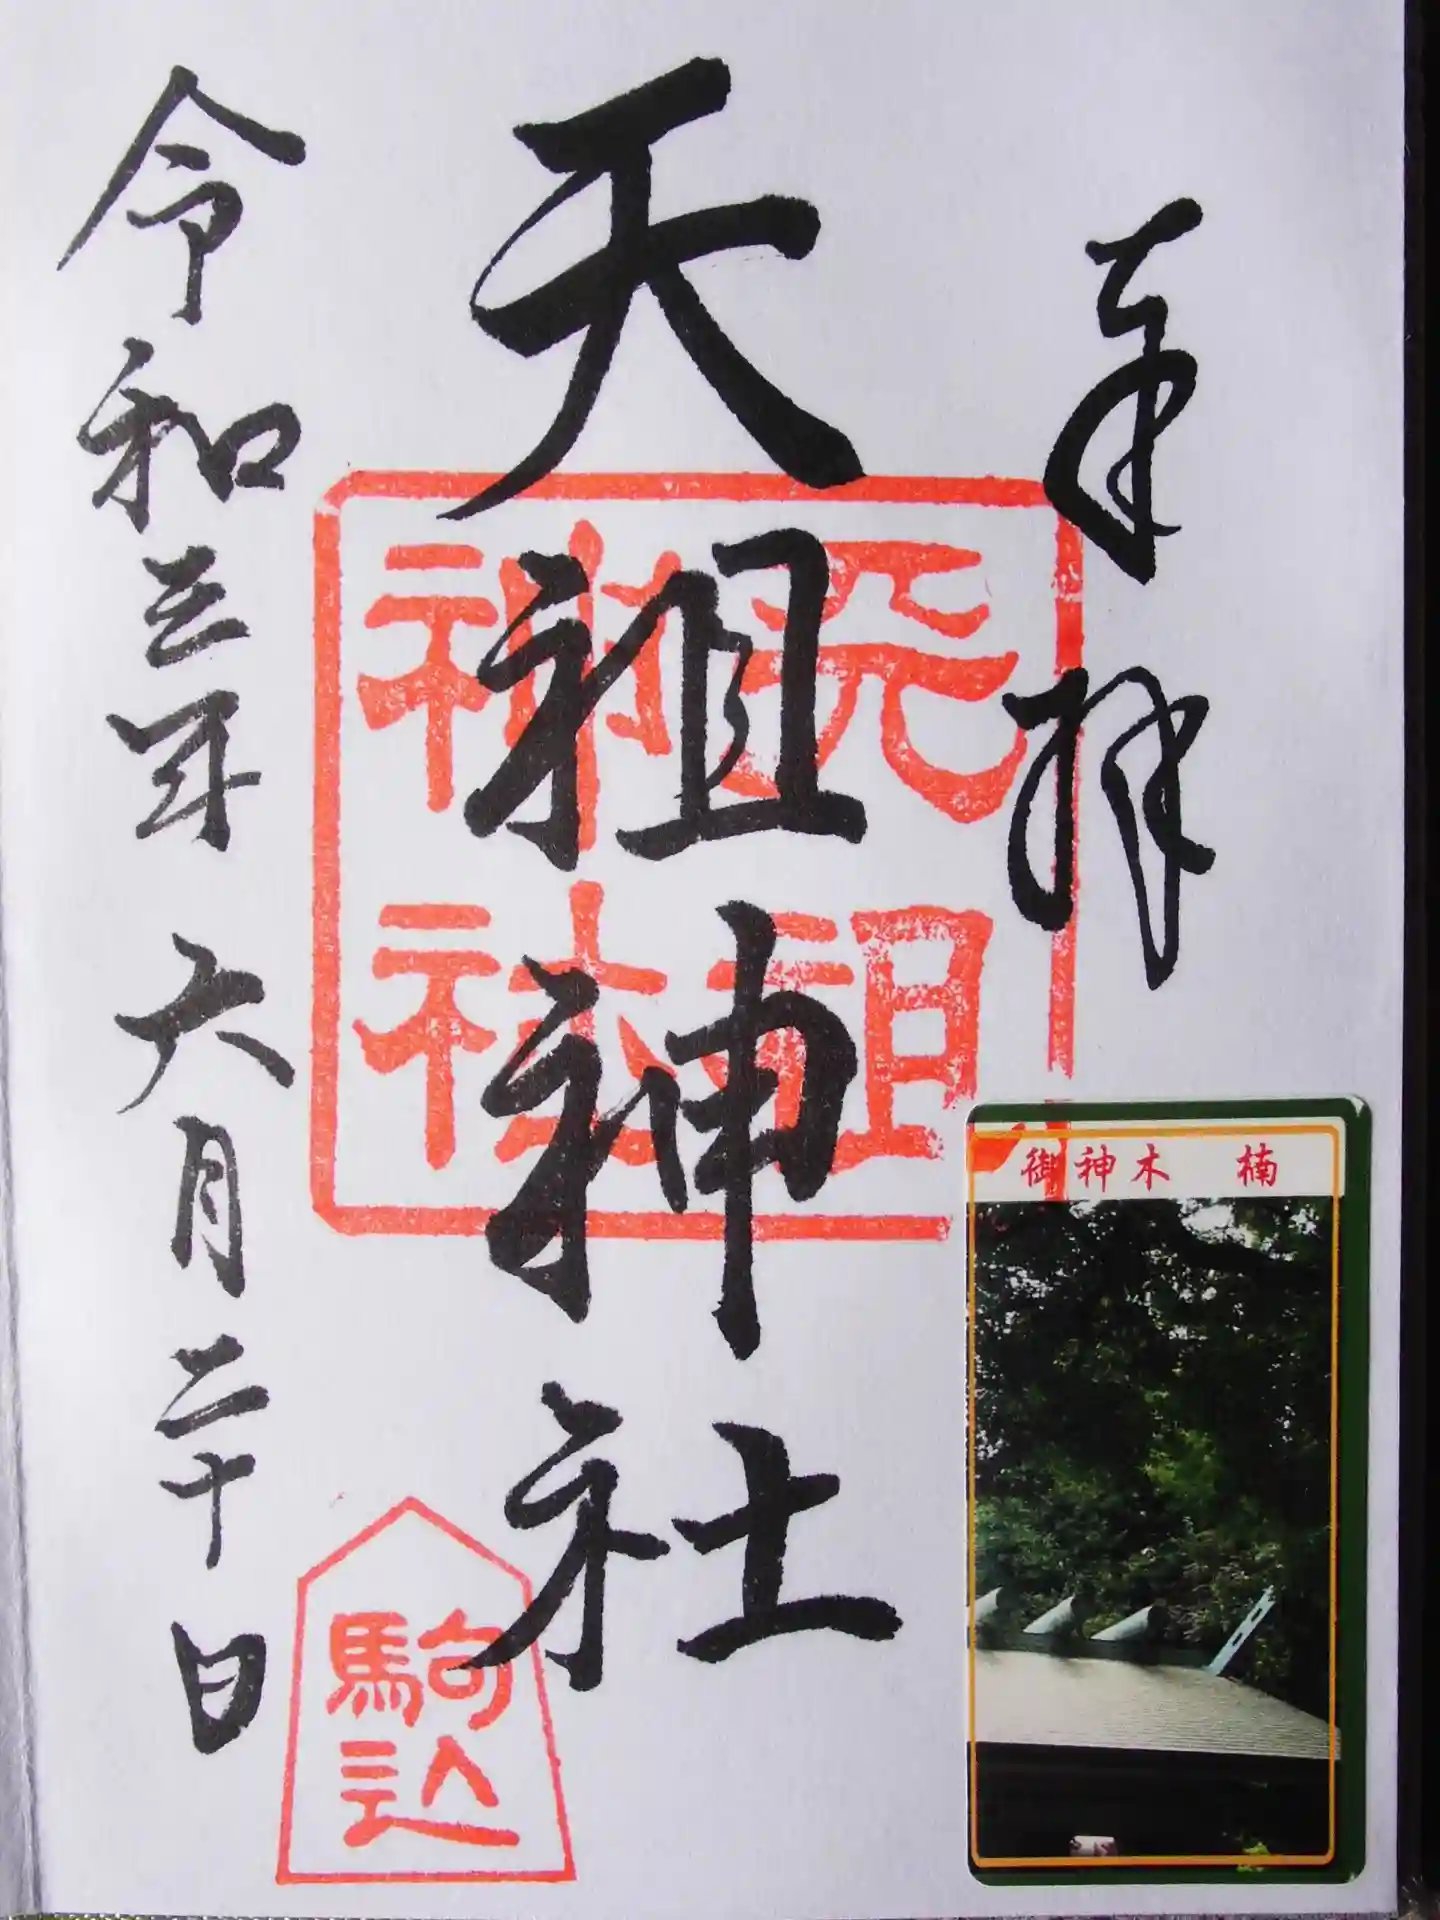 奉拝
天祖神社
天祖
神社
令和三年六月二十日
駒込
御神木 楠